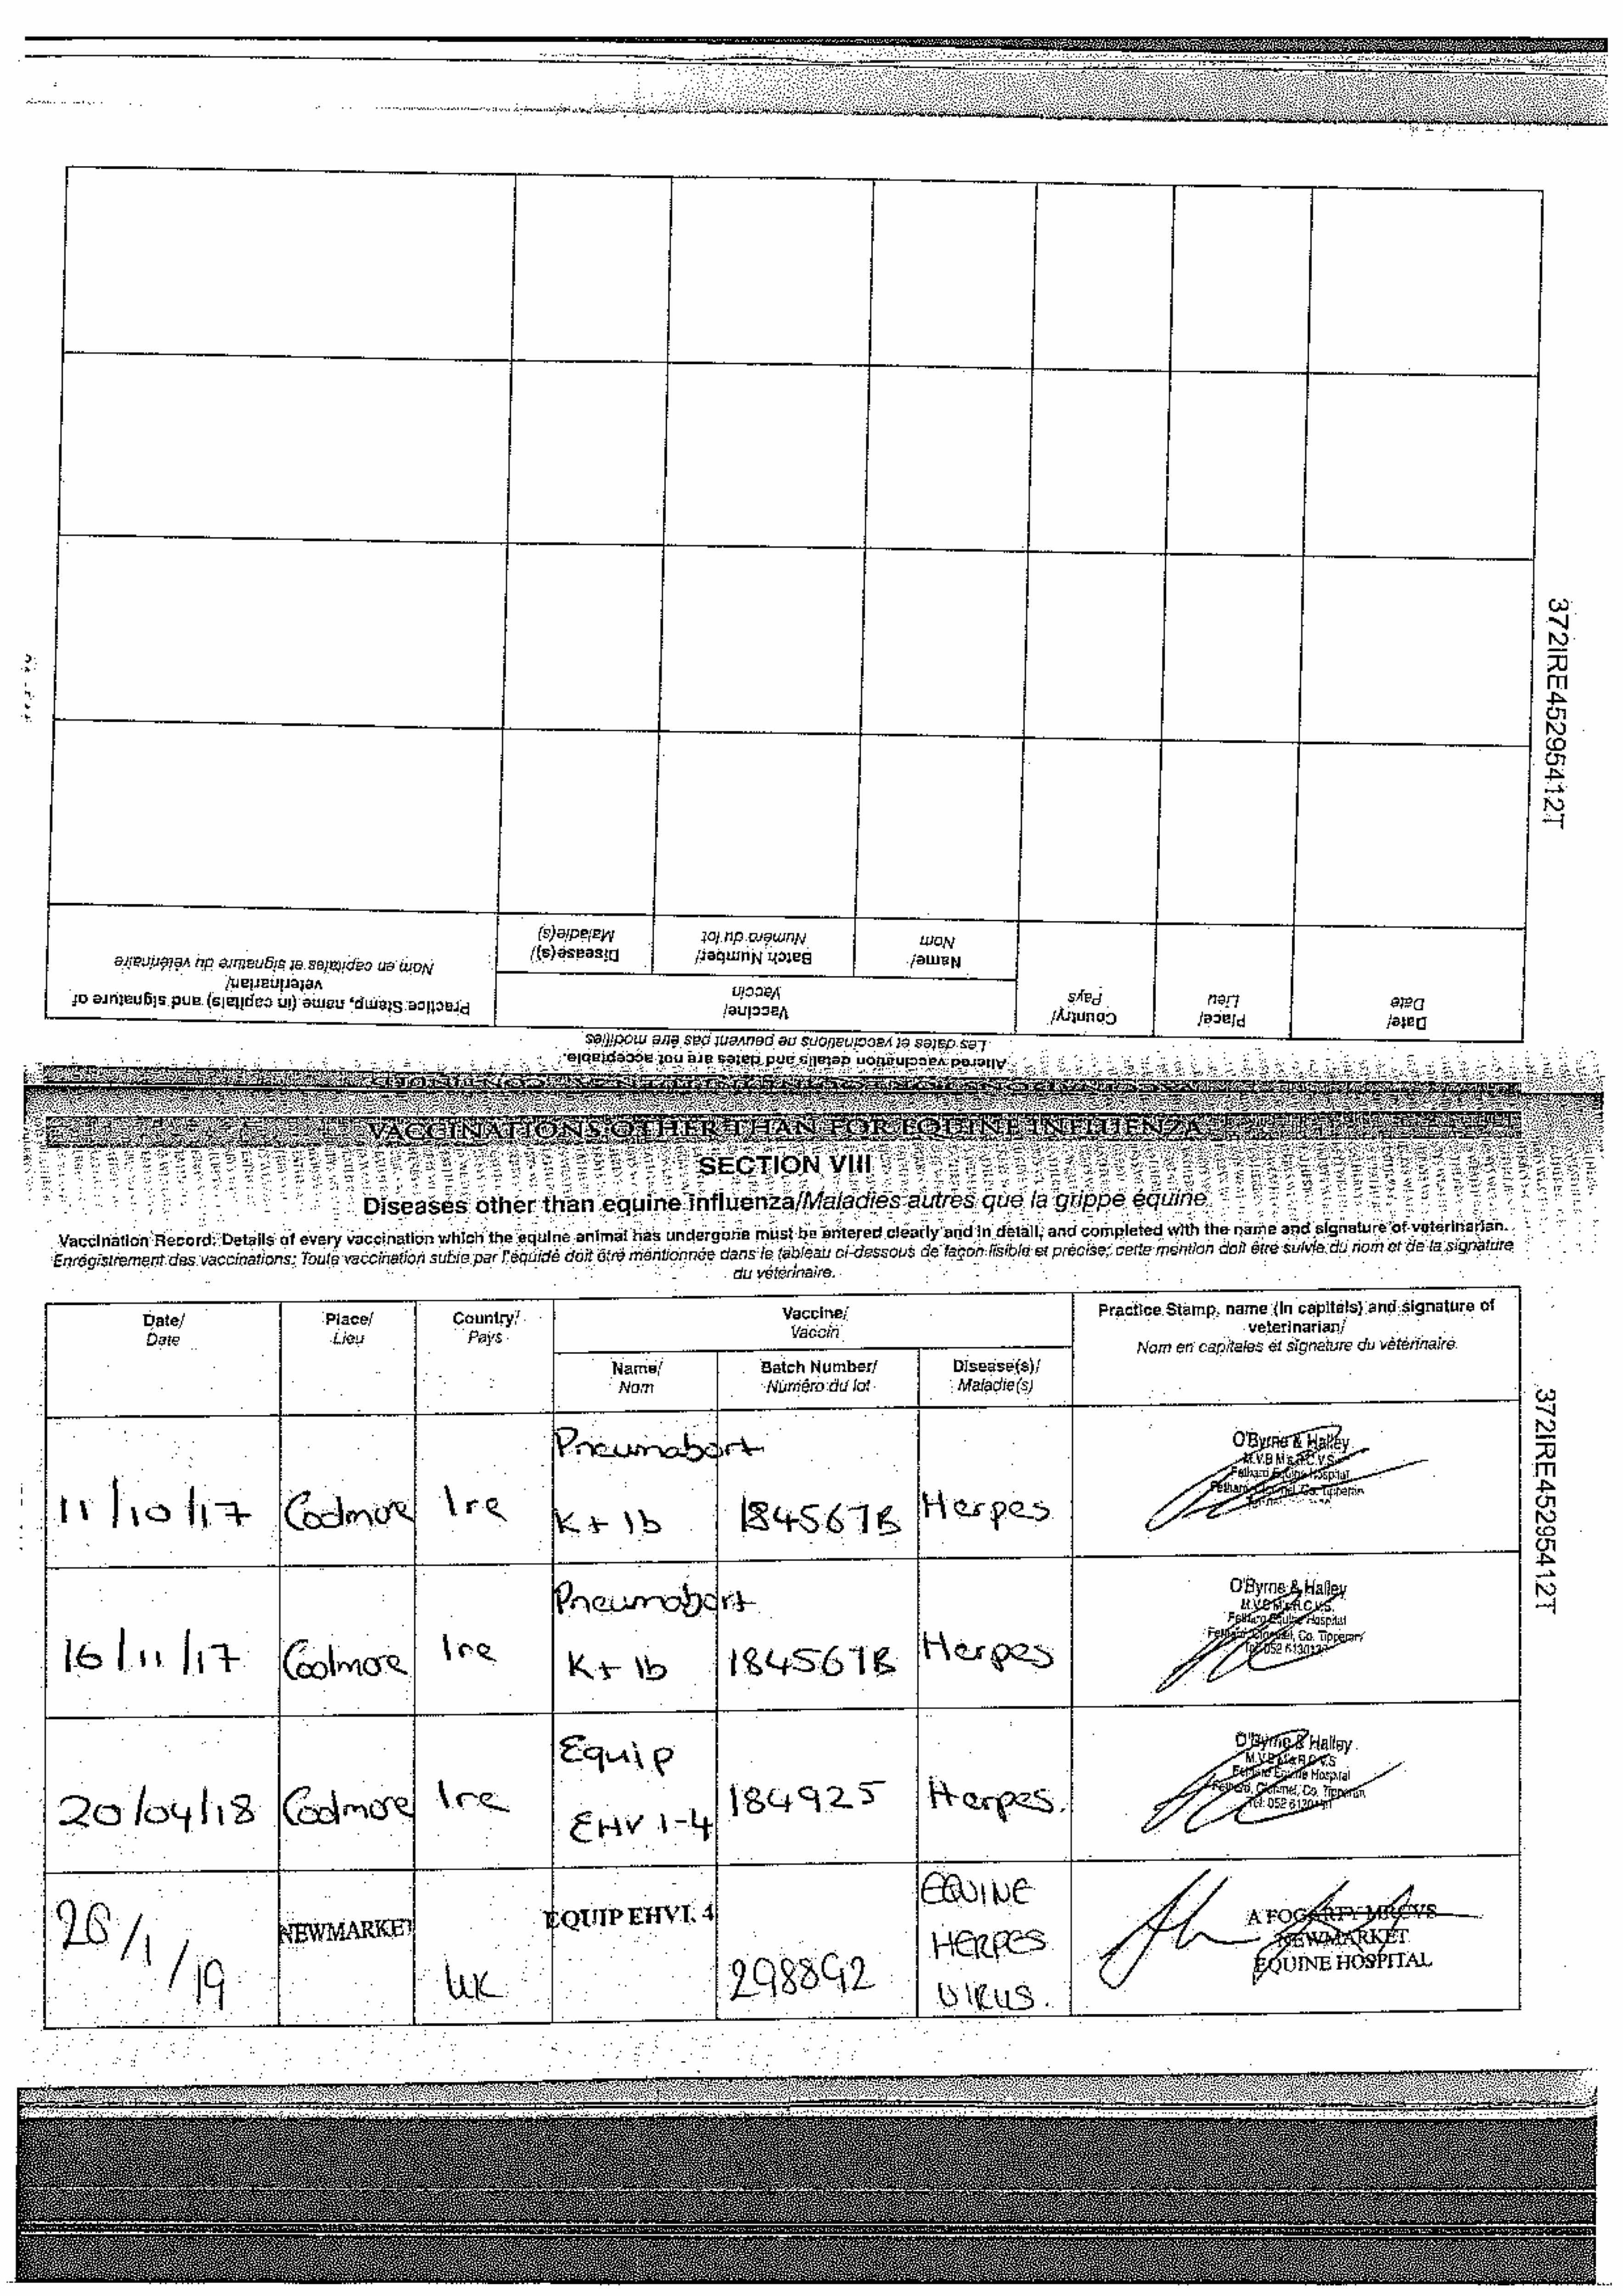 372IRE45295412T
Practice Stamp, name (in capitals) and signature of
veterinarian/
Nom en capitales et signature du vétérinaire
Vaccine/
Vaccin
Disease(s)/
Maladie(s)
Batch Number/
Numéro du lot
Name/
Nom
Country/
Pays
Place/
Lieu
Date/
Date
Altered vaccination details and dates are not acceptable.
Les dates et vaccinations ne peuvent pas être modifiées
VACCINATIONS OTHER THAN FOR EQUINE INFLUENZA
SECTION VIII
Diseases other than equine influenza/Maladies autres que la grippe équine
Vaccination Record: Details of every vaccination which the equine animal has undergone must be entered clearly and in detail, and completed with the name and signature of veterinarian.
Enregistrement des vaccinations: Toute vaccination subie par l'équidé doit être mentionnée dans le tableau ci-dessous de façon lisible et précise; cette mention doit être suivie du nom et de la signature
du vétérinaire.
Date/
Date
Place/
Lieu
Country/
Pays
Vaccine/
Vaccin
Name/
Nom
Batch Number/
Numéro du lot
Disease(s)/
Maladie(s)
Practice Stamp, name (in capitals) and signature of
veterinarian/
Nom en capitales et signature du vétérinaire.
372IRE45295412T
11/10/17 Coolmore Ire Pneumabort
K + 1b 184567B Herpes
O'Byrne & Halley
M.V.B M's R.C.V.S
Fethard Equine Hospital
Fethard, Clonmel, Co. Tipperary
16/11/17 Coolmore Ire Pneumabort
K + 1b 184567B Herpes
O'Byrne & Halley
M.V.B M's R.C.V.S.
Fethard Equine Hospital
Fethard, Clonmel, Co. Tipperary
Tel: 052 61301
20/04/18 Coolmore Ire Equip
EHV 1-4 184925 Herpes.
O'Byrne & Halley
M.V.B M's R.C.V.S
Fethard Equine Hospital
Fethard, Clonmel, Co. Tipperary
Tel: 052 61301
/1/19 NEWMARKET UK EQUIP EHV1, 4
EQUINE
HERPES
VIRUS.
A FOGARTY MRCVS
NEWMARKET
EQUINE HOSPITAL